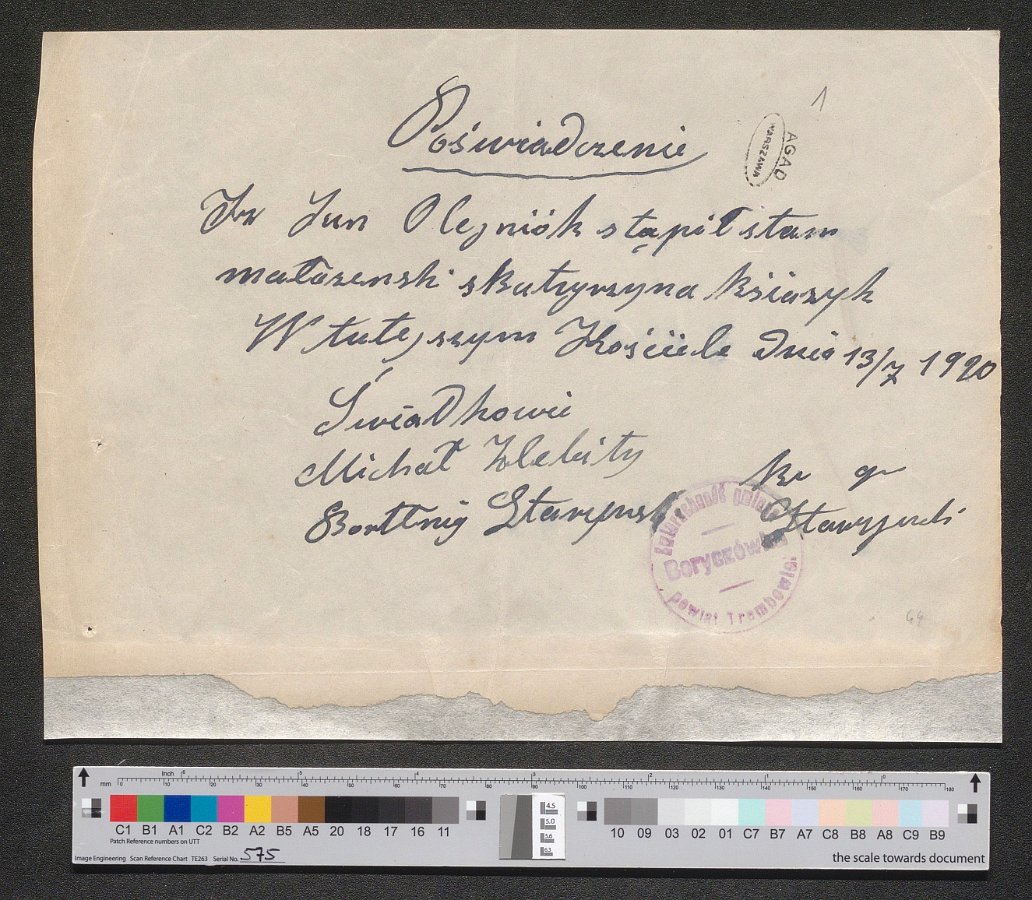 1
AGAD
WARSZAWA
Poświadczenie
Jan Olejniók stąpił stam
małazenski s Katyrzyna Ksiazyk
W tutejszym Kościele dnia 13/7 1920
Świadkowie
Michał
Stawyski
Zwierzchność gminna
Boryczówka
powiat Trembowla
64
mm
Inch
C1 B1 A1 C2 B2 A2 B5 A5 20 18 17 16 11
Patch Reference numbers on UTT
Image Engineering Scan Reference Chart TE263 Serial No. 575
4.5
5.0
5.6
6.3
10 09 03 02 01 C7 B7 A7 C8 B8 A8 C9 B9
the scale towards document